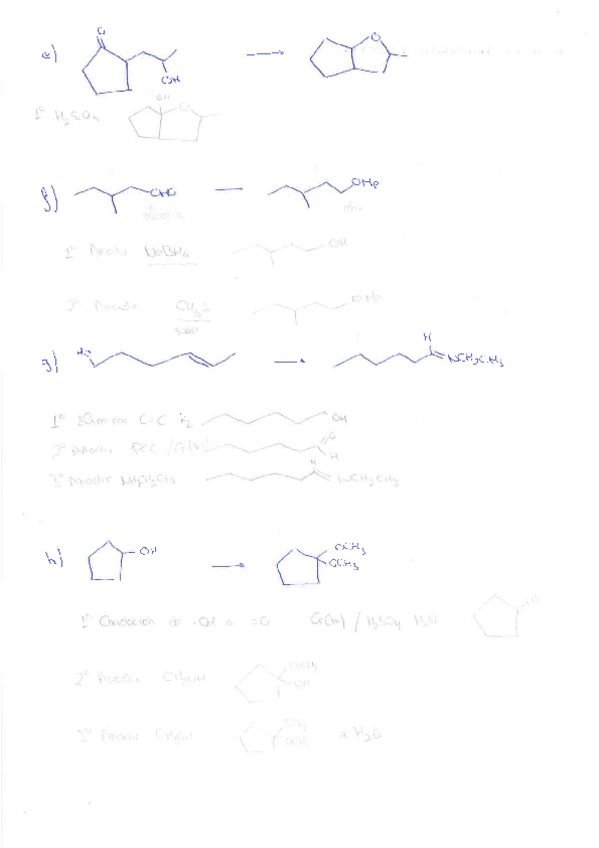 e) O OH O
OH
1º H₂SO₄ O
f) CHO OMe
1º Añadir NaBH₄ OH
2º Añadir CH₃I OMe
g) HO H NCH₂CH₃
1º Eliminar C=C H₂ OH
2º Añadir PCC / Cr(VI) O H
3º Añadir NH₂CH₂CH₃ H NCH₂CH₃
h) OH OCH₃ OCH₃
1º Oxidación de -OH a =O Cr(VI) / H₂SO₄ H₂O O
2º Añadir CH₃OH OCH₃ OH
3º Añadir CH₃OH OCH₃ OCH₃ + H₂O